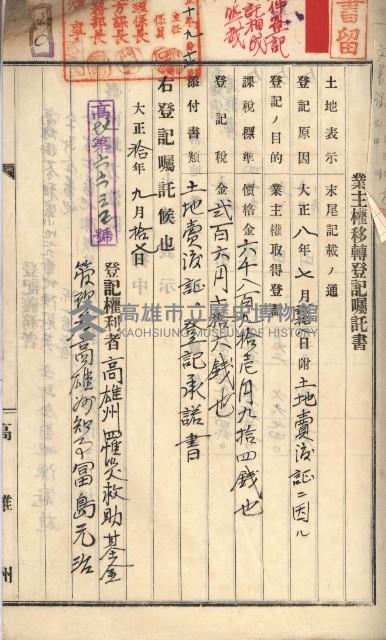 業主權移轉登記囑託書
土地表示 末尾記載ノ通
登記原因 大正八年七月 日附土地賣渡証ニ因ル
登記ノ目的 業主權取得登記
課稅標準 價格金六千八百九拾壱円九拾四錢也
登記稅 金弐百六円七拾六錢也
添付書類 土地賣渡証 登記承諾書
右登記囑託候也
大正拾年九月拾 日
高 第六六三 號
登記權利者 高雄州罹災救助基金
管理者高雄州知事富島元治
高雄州
書留
高雄市立歷史博物館
KAOHSIUNG MUSEUM OF HISTORY